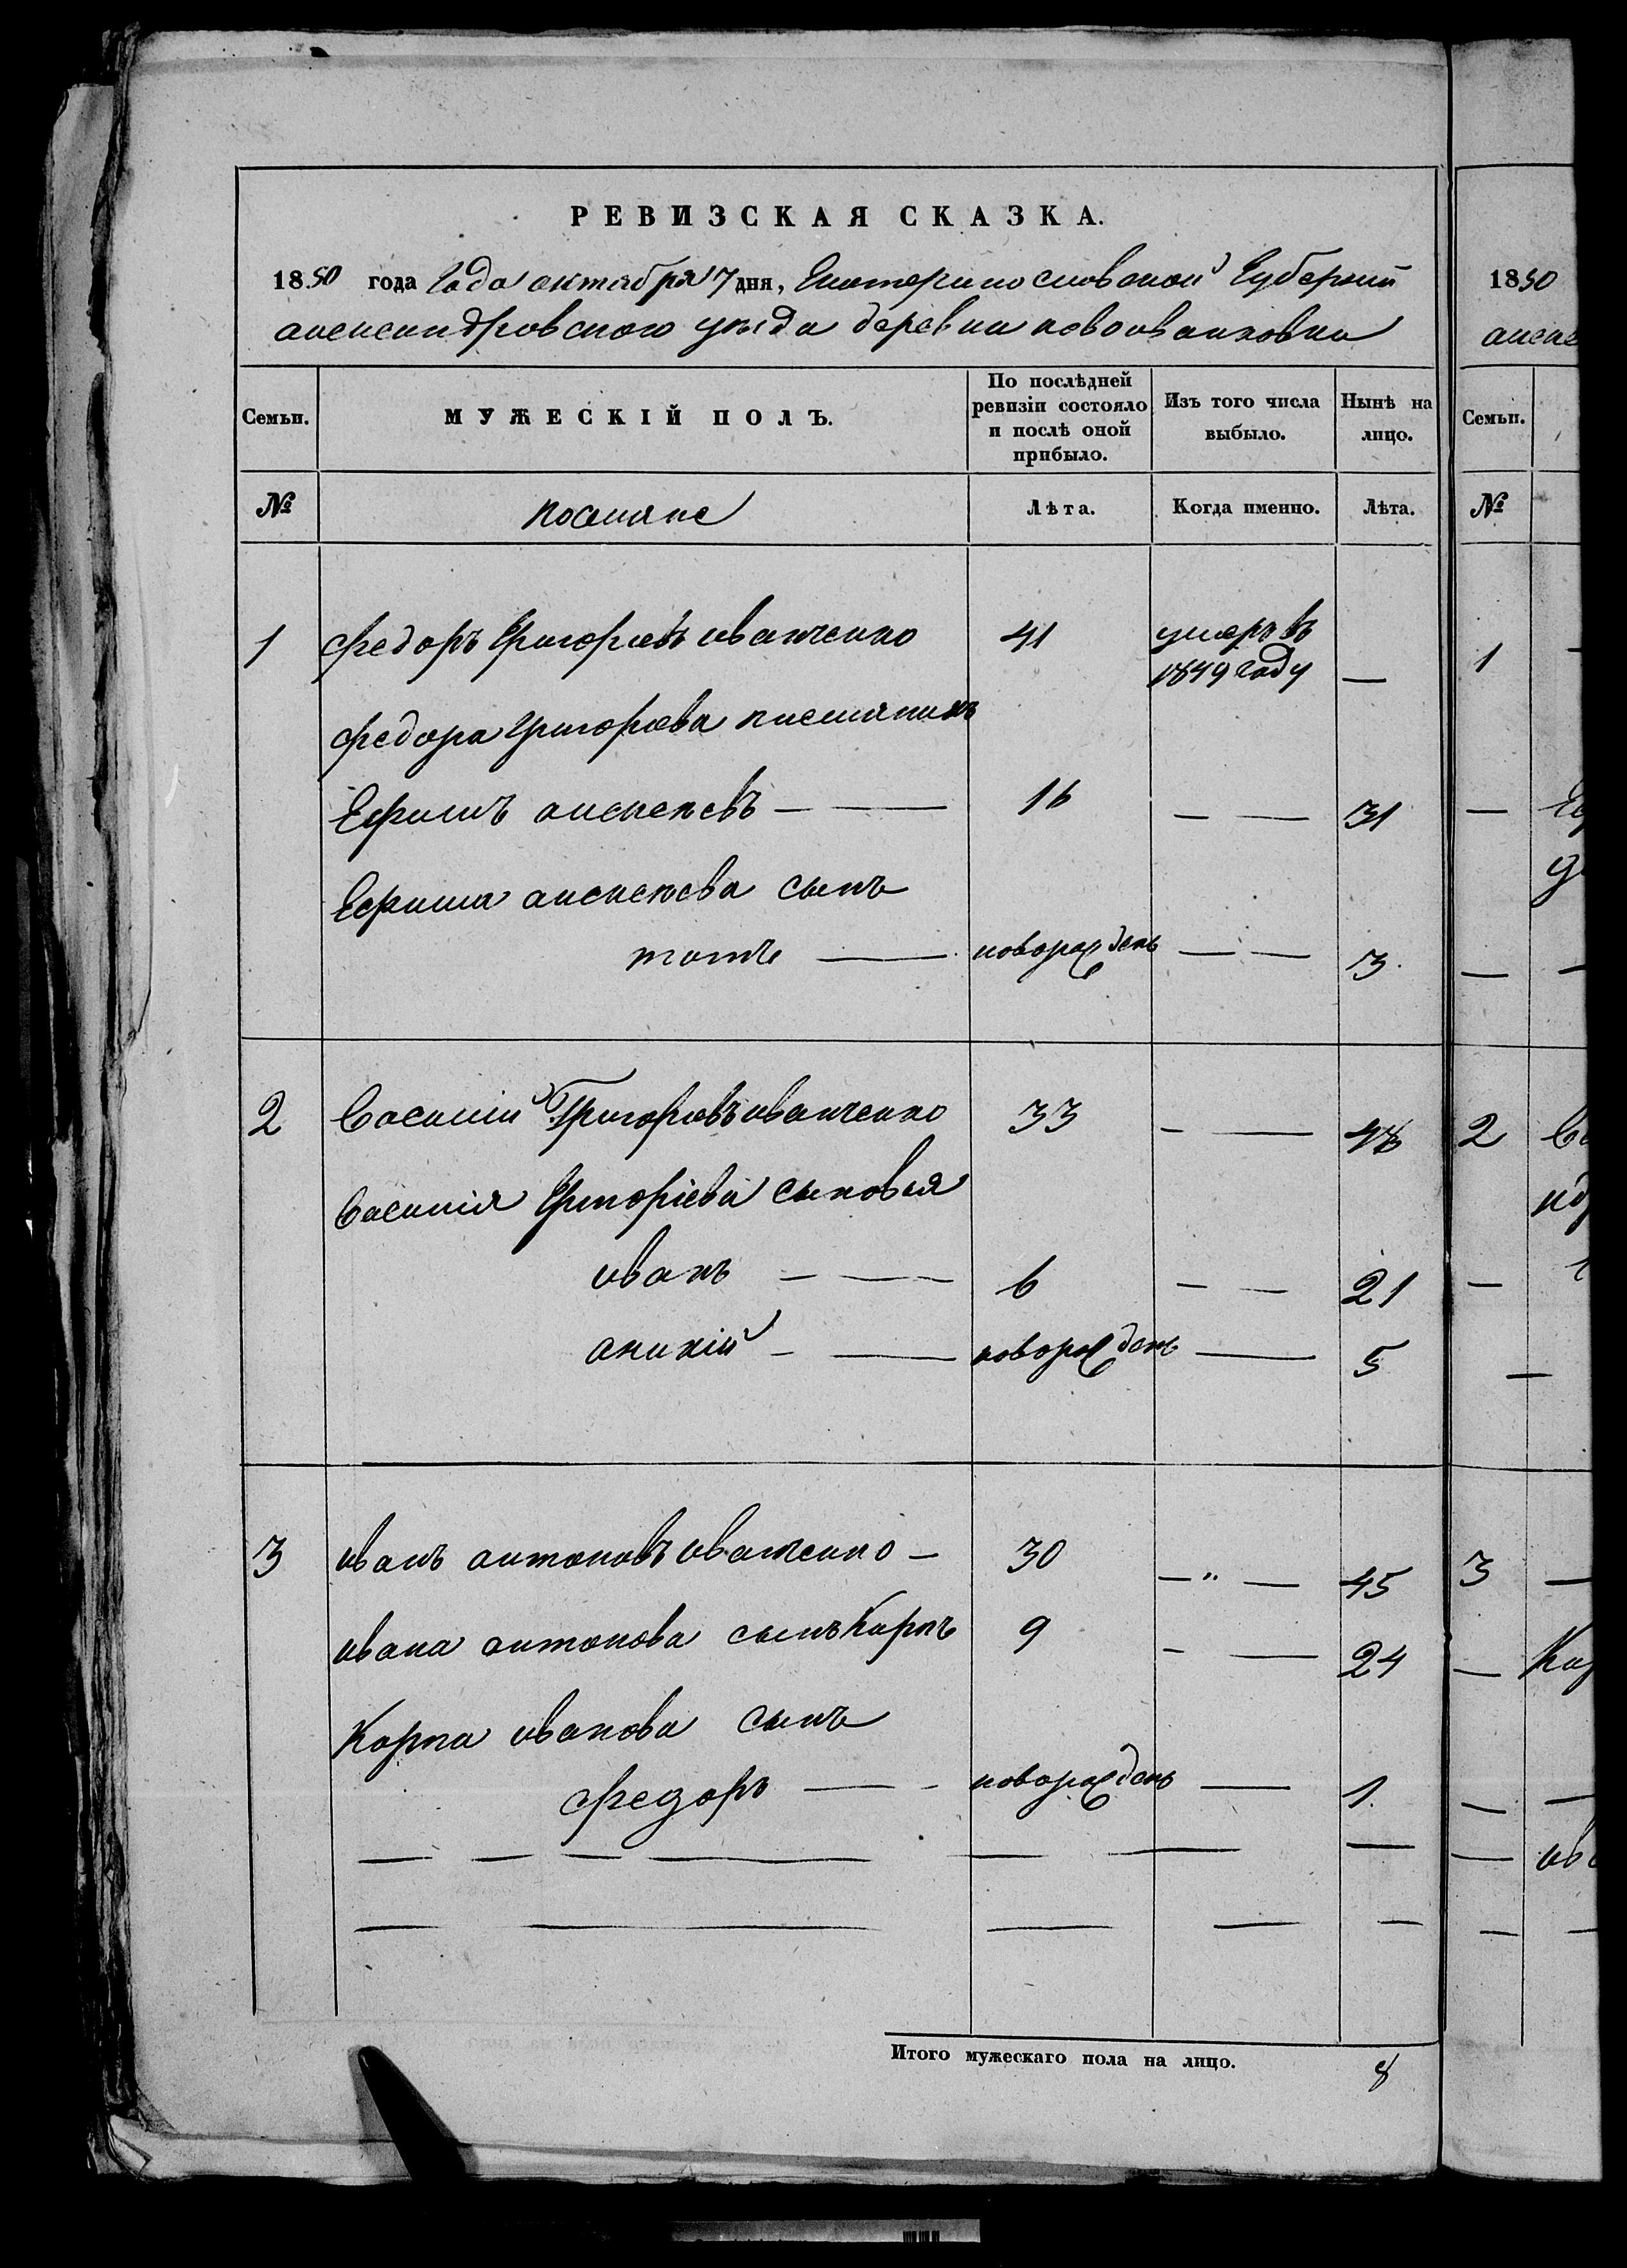 РЕВИЗСКАЯ СКАЗКА.
1850 года Года октября 7 дня, Екатеринославской Губернии
александровского уезда деревни новоивановки
Семьи.
МУЖЕСКІЙ ПОЛЪ.
По послѣдней ревизіи состояло и послѣ оной прибыло.
Изъ того числа выбыло.
Нынѣ на лицо.
№
поселяне
Лѣта.
Когда именно.
Лѣта.
1 федоръ Григориевъ иванченко 41 умеръ въ 1849 году —
федора григориева племяникъ
Ефимъ алексеевъ — — 16 — — 31
Ефима алексеева сынъ
— новорожденъ — — 3
2 Василий Григориевъ иванченко 33 — — 48
Василия Григоріева сыновья
иванъ — — 6 — — 21
аникій — — новорожденъ — 5
3 иванъ антоновъ иванченко — 30 — " — 45
ивана антонова сынъ Карпъ 9 — — 24
Карпа иванова сынъ
федоръ — - новорожденъ — 1
Итого мужескаго пола на лицо. 8
1850
Семьи.
№
1
2
3